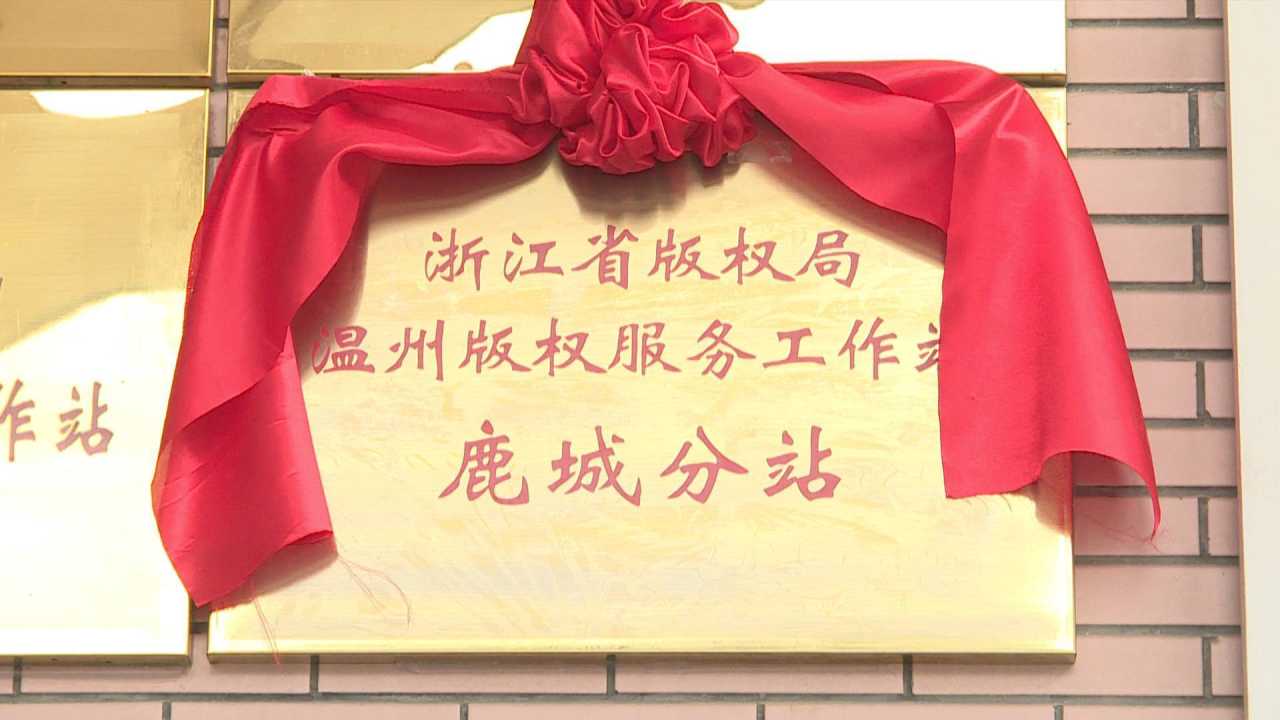 浙江省版权局
温州版权服务工作站
鹿城分站
作站